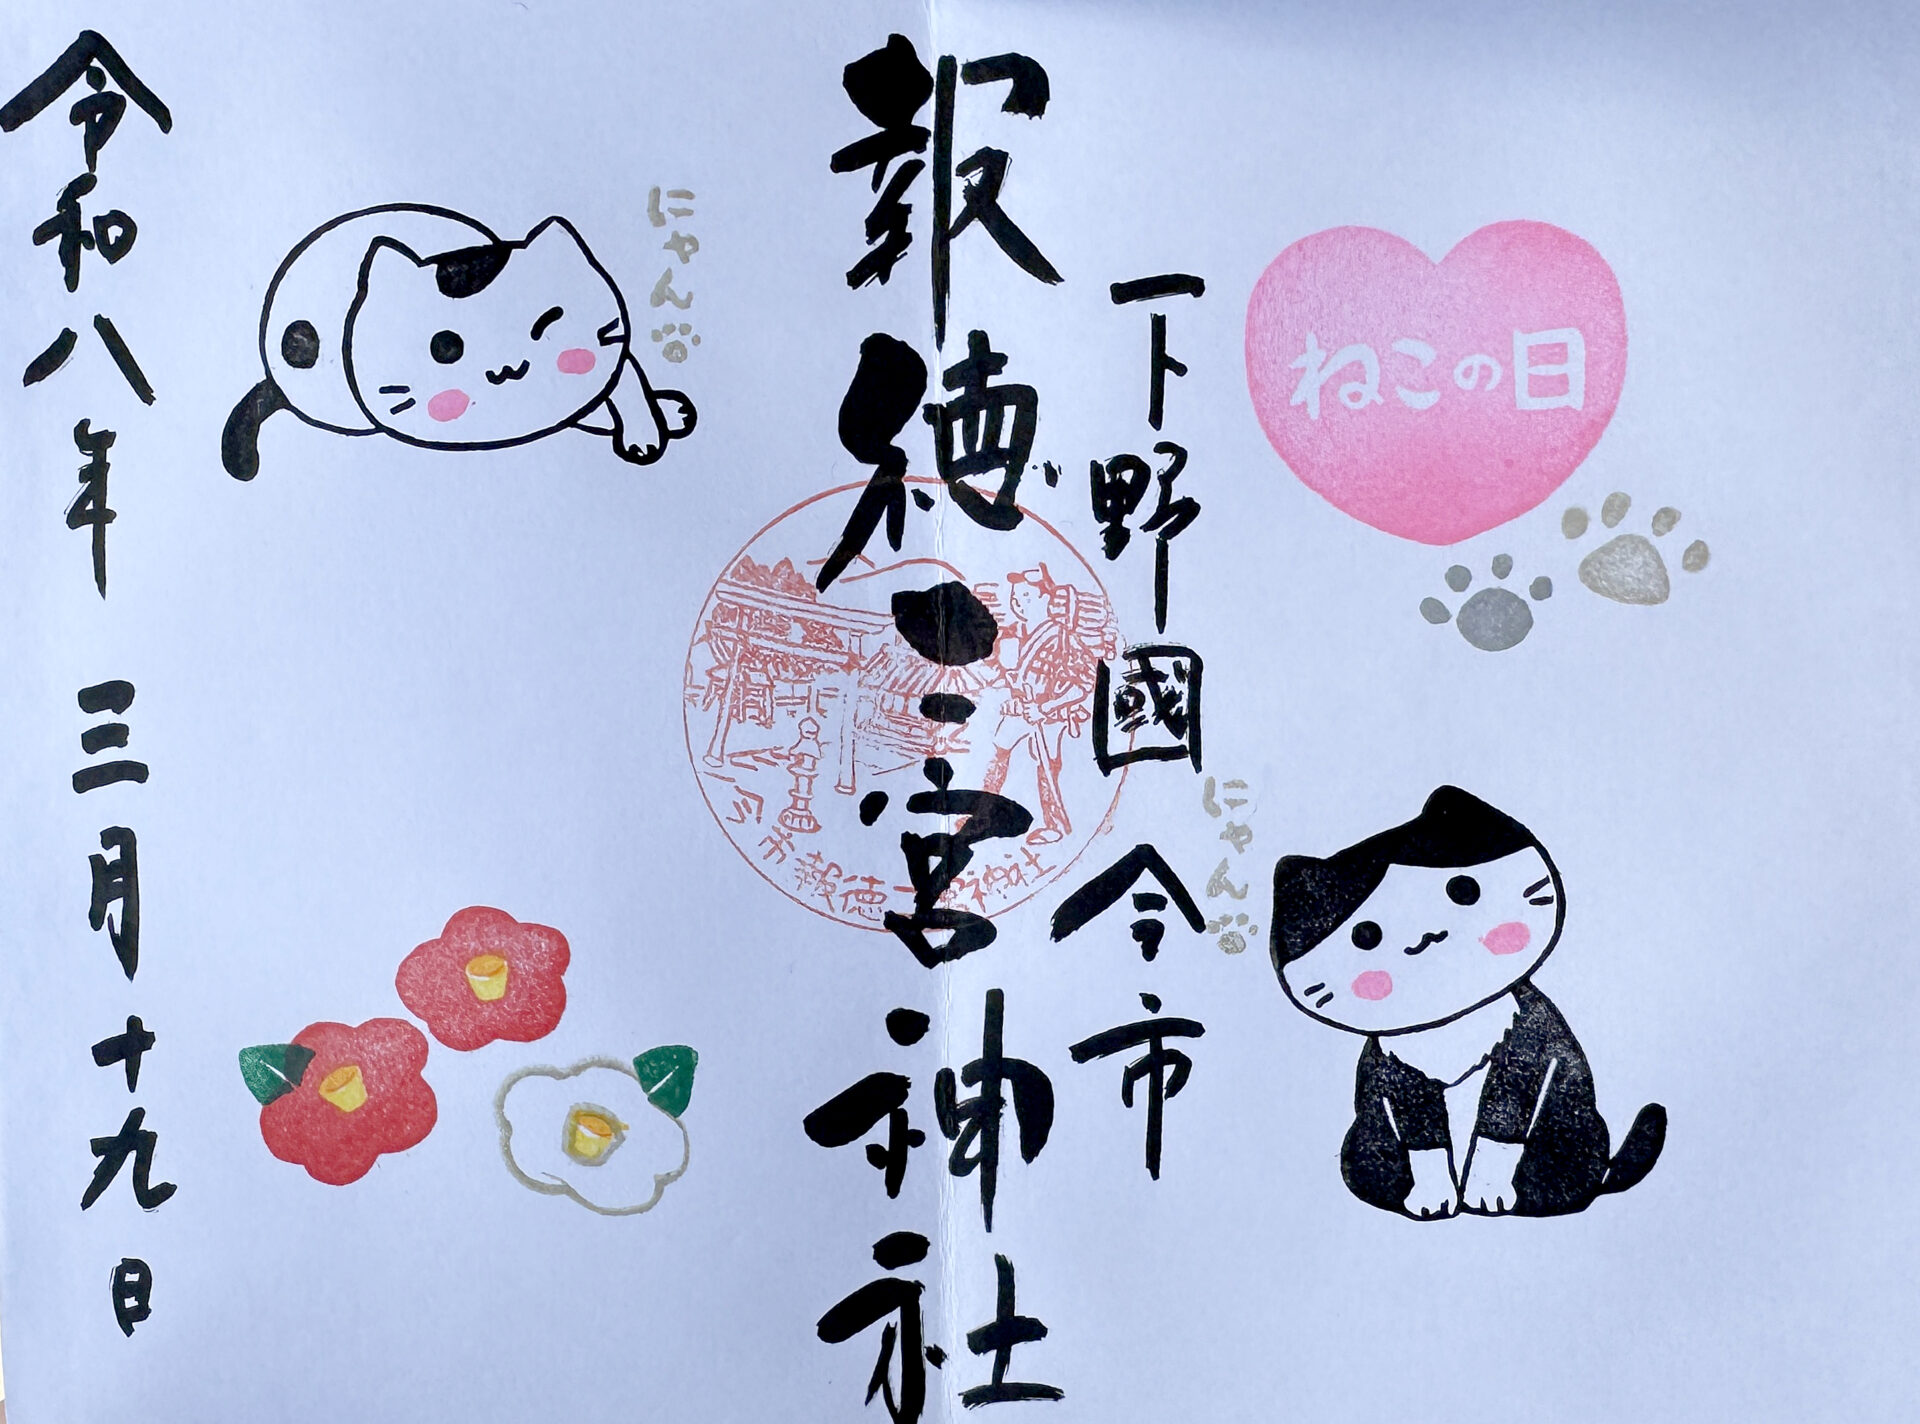 ねこの日
下野國 今市
にゃん
報徳二宮神社
今市報徳二宮神社
にゃん
令和八年 三月十九日